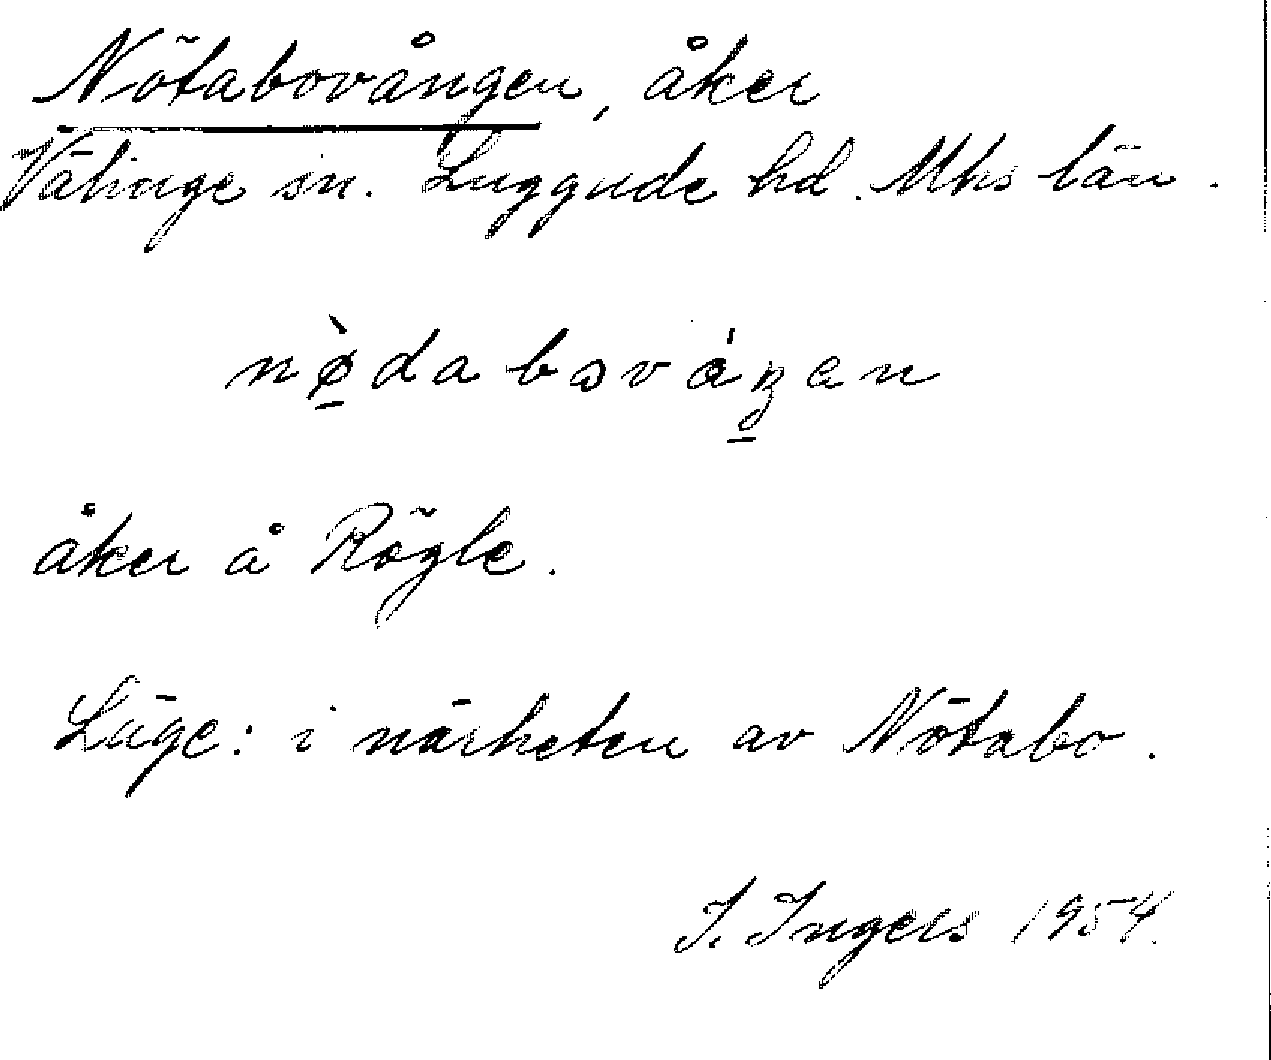 Nötabovången, åker
Välinge sn. Luggude hd. Mhs län.
nø̀dabovåŋen
åker å Rögle.
Läge: i närheten av Nötabo.
I. Ingers 1954.